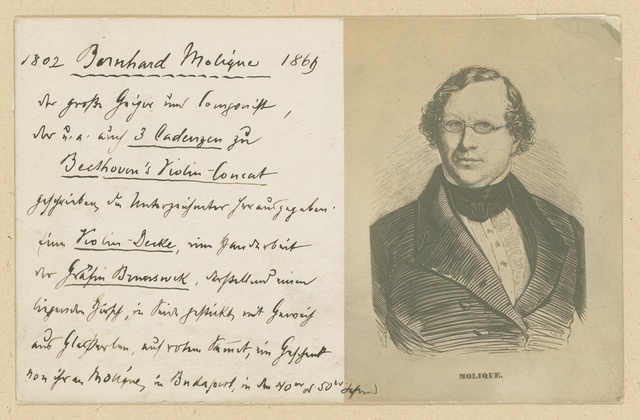 1802 Bernhard Molique 1869
der große Geiger und Componist,
der u. a. auch 3 Cadenzen zu
Beethoven's Violin-Concert
geschrieben, die Unterzeichneter herausgegeben.
Eine Violin-Decke, eine Handarbeit
der Gräfin Brunswick, darstellend einen
liegenden Hirsch, in Seide gestickt, mit Geweih
aus Glasperlen, auf rotem Samet, ein Geschenk
von ihr an Molique, in Budapest, in den 40er od 50er
MOLIQUE.